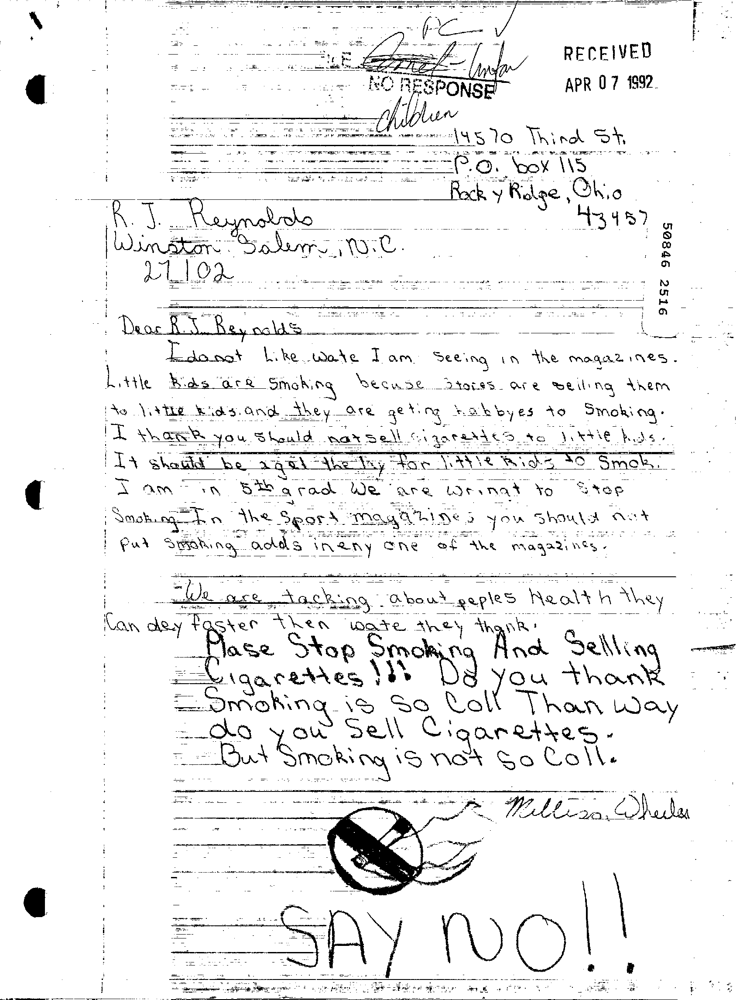 PC
FILE Camel - Unfav
NO RESPONSE
children
RECEIVED
APR 07 1992
14570 Third St.
P.O. box 115
Rocky Ridge, Ohio
43457
R. J. Reynolds
Winston Salem, N.C.
27102
50846 2516
Dear R.J. Reynolds
I donot Like wate I am seeing in the magazines.
Little kids are smoking becuse stores are selling them
to little kids. and they are geting habbyes to Smoking.
I thank you should not sell cigarettes to little kids.
It should be agat the lay for little kids to Smok.
I am in 5th grad We are wringt to Stop
Smoking. In the Sport magazines you should not
put smoking adds in eny one of the magazines.
We are tacking about peples Health they
Can dey faster then wate they thank.
Plase Stop Smoking And Sellling
Cigarettes!!! Do you thank
Smoking is so Coll Than way
do you Sell Cigarettes.
But Smoking is not so Coll.
Mellissa Wheeler
SAY NO!!